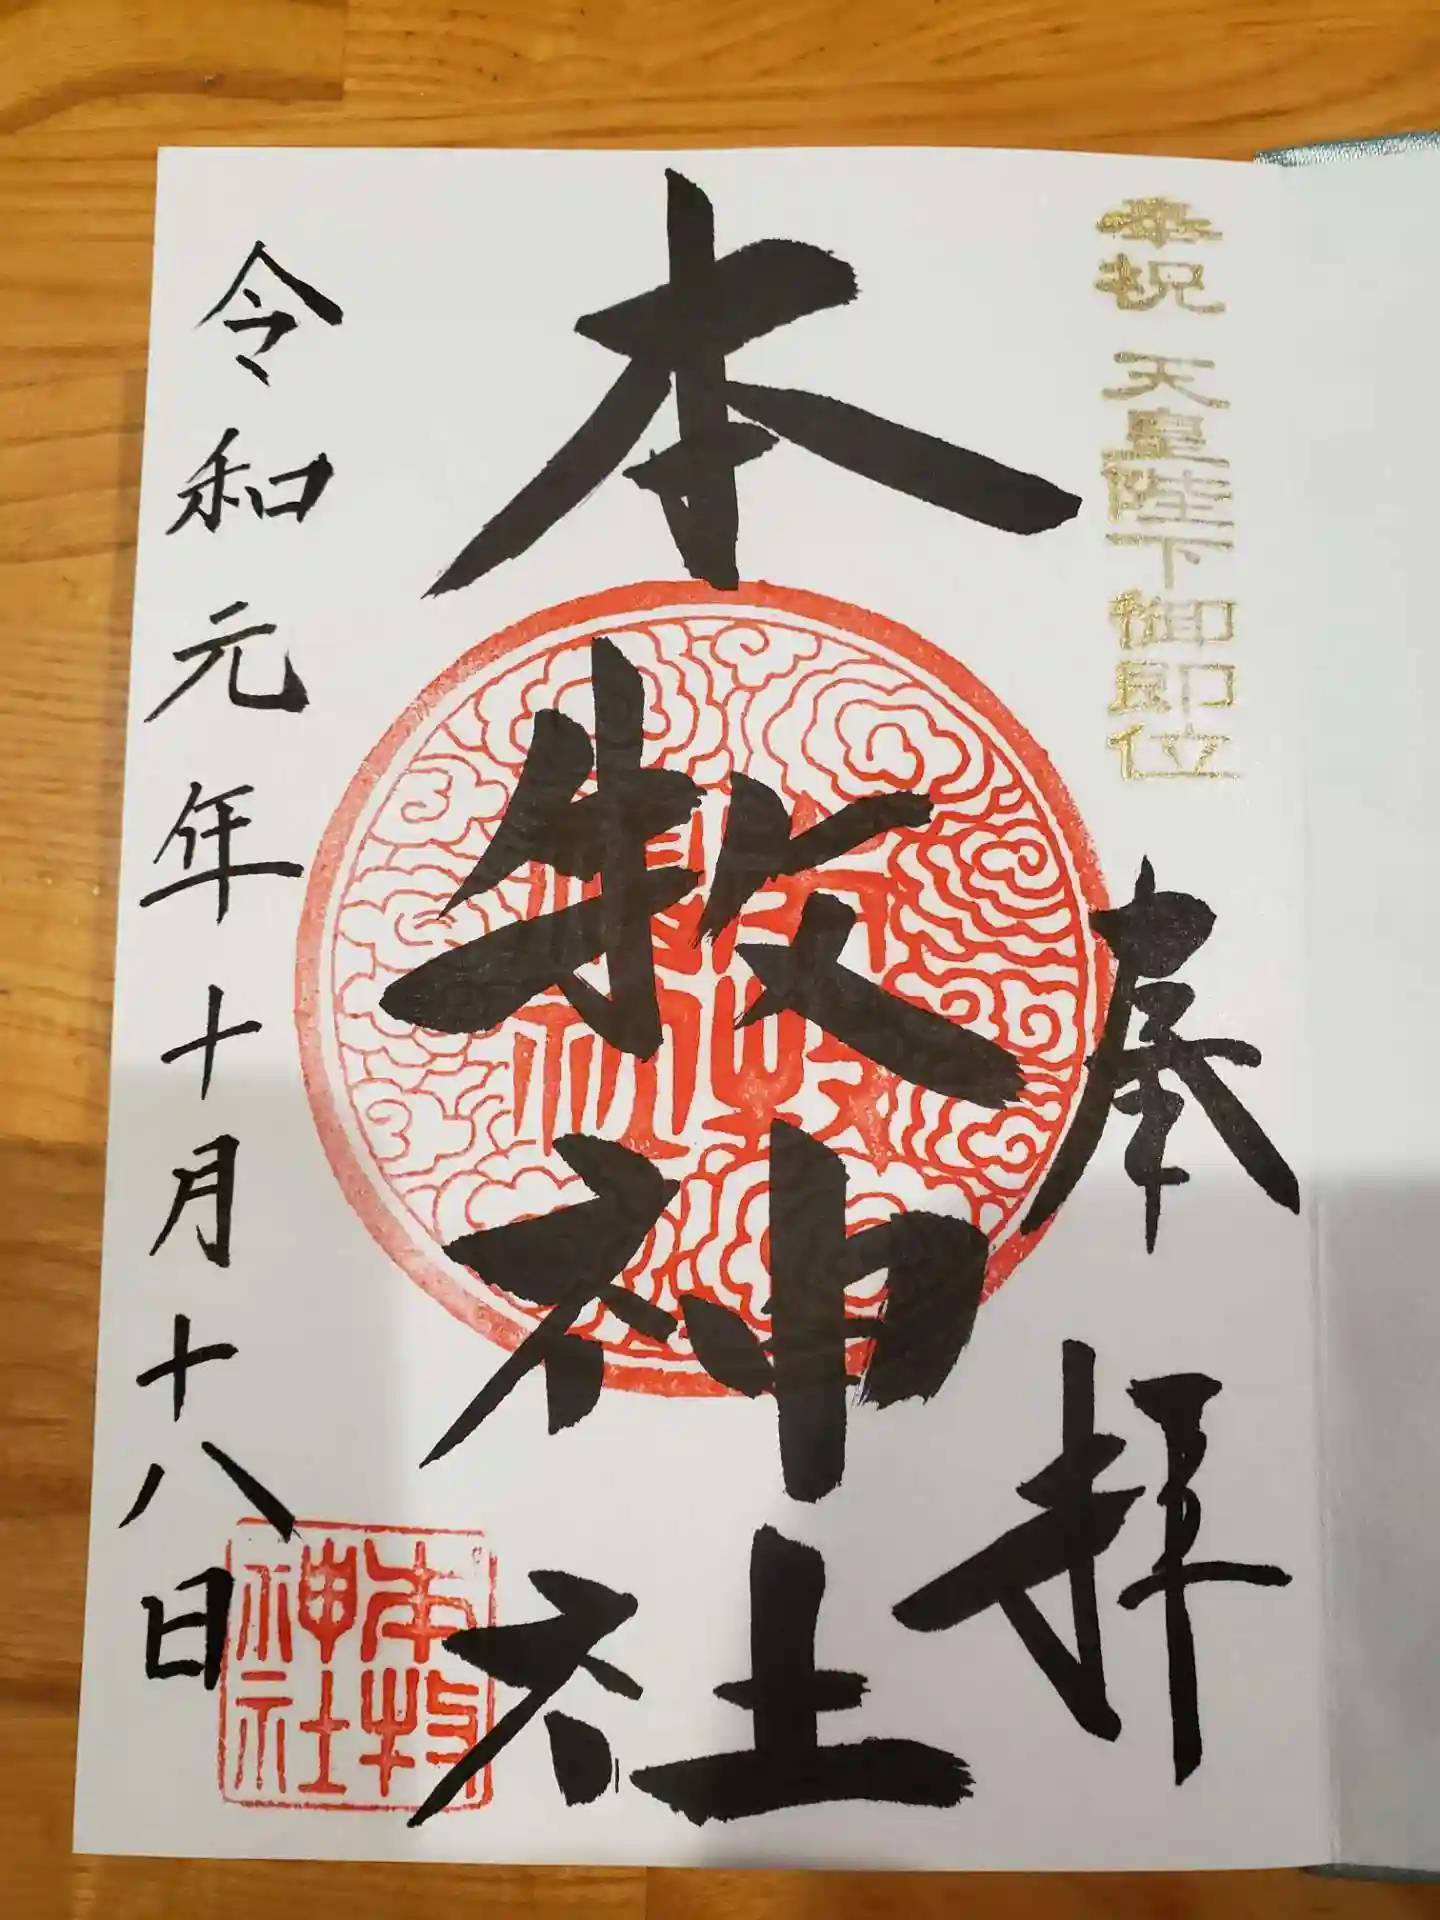 奉祝 天皇陛下御即位
奉拝
本牧神社
令和元年十月十八日
本牧
神社